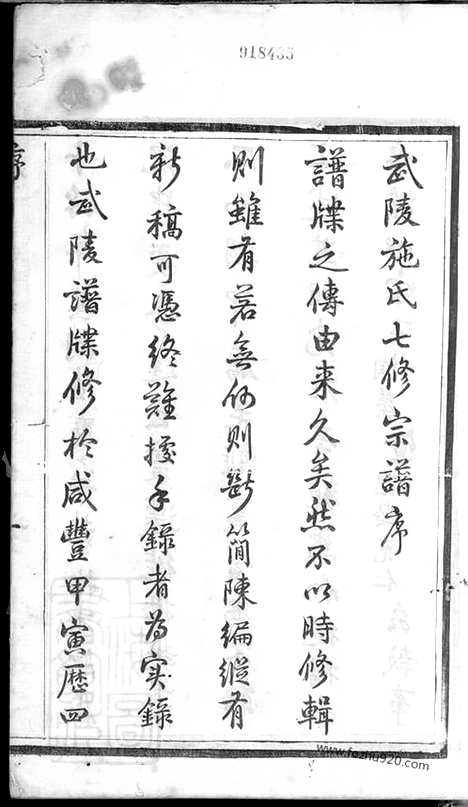 918435
武陵施氏七修宗譜序
譜牒之傳由来久矣然不以時修輯
則雖有若無何則斷簡陳編縱有
新稿可憑終難據手錄者為實錄
也武陵譜牒修於咸豐甲寅歷四
序
www.fozhu920.com